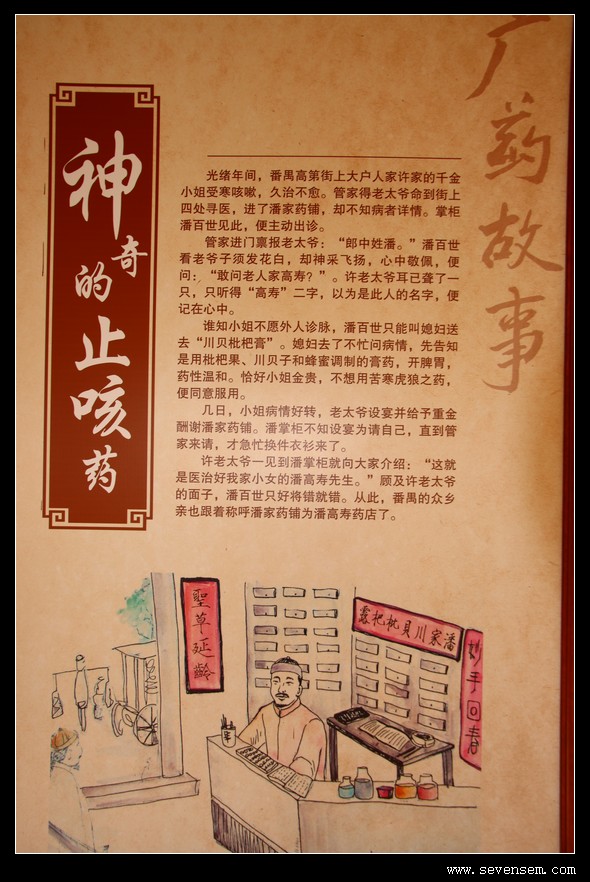 广药故事
神奇的止咳药
光绪年间，番禺高第街上大户人家许家的千金
小姐受寒咳嗽，久治不愈。管家得老太爷命到街上
四处寻医，进了潘家药铺，却不知病者详情。掌柜
潘百世见此，便主动出诊。
管家进门禀报老太爷：“郎中姓潘。”潘百世
看老爷子须发花白，却神采飞扬，心中敬佩，便
问：“敢问老人家高寿？”。许老太爷耳已聋了一
只，只听得“高寿”二字，以为是此人的名字，便
记在心中。
谁知小姐不愿外人诊脉，潘百世只能叫媳妇送
去“川贝枇杷膏”。媳妇去了不忙问病情，先告知
是用枇杷果、川贝子和蜂蜜调制的膏药，开脾胃，
药性温和。恰好小姐金贵，不想用苦寒虎狼之药，
便同意服用。
几日，小姐病情好转，老太爷设宴并给予重金
酬谢潘家药铺。潘掌柜不知设宴为请自己，直到管
家来请，才急忙换件衣衫来了。
许老太爷一见到潘掌柜就向大家介绍：“这就
是医治好我家小女的潘高寿先生。”顾及许老太爷
的面子，潘百世只好将错就错。从此，番禺的众乡
亲也跟着称呼潘家药铺为潘高寿药店了。
聖草延齡
潘家川貝枇杷露
妙手回春
www.sevensem.com